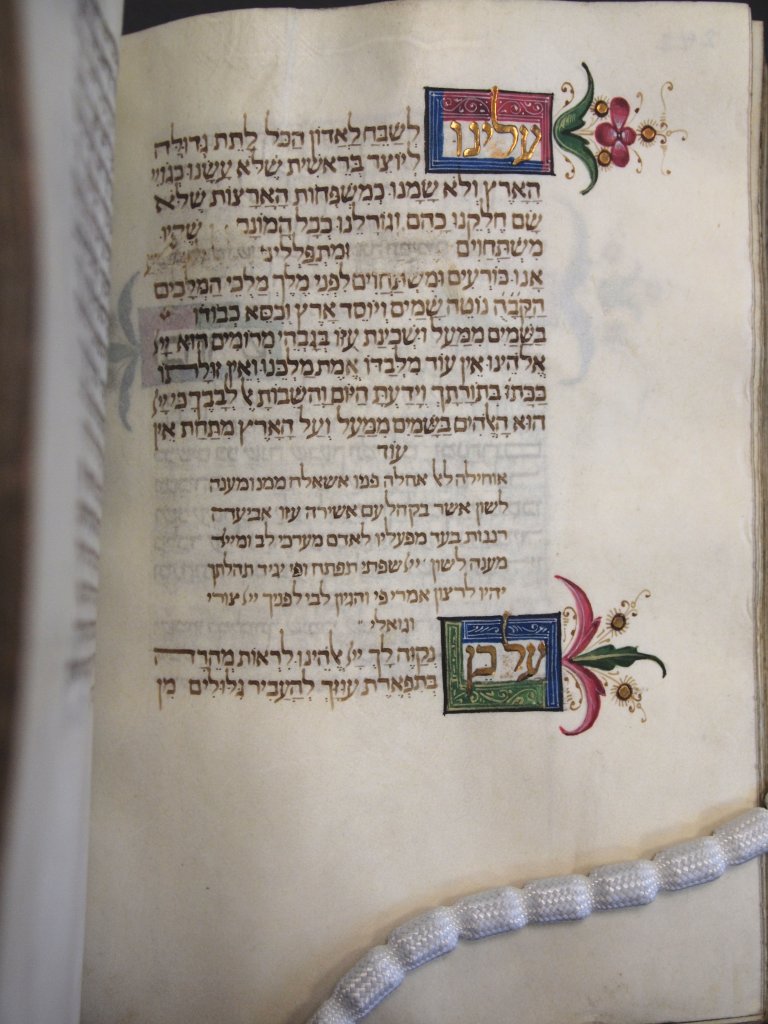 עלינו לשבח לאדון הכל לתת גדולה
ליוצר בראשית שלא עשנו כגויי
הארץ ולא שמנו כמשפחות הארצות שלא
שם חלקנו כהם וגורלנו ככל המונר שהיו
משתחוים ומתפללי
אנו כורעים ומשתחוים לפני מלך מלכי המלכים
הקבה נוטה שמים ויוסד ארץ וכסא כבודו
בשמים ממעל ושכינת עזו בגבהי מרומים הוא
אלהינו אין עוד מלבדו אמת מלכנו ואין זולתו
ככתו בתורתך וידעת היום והשבות לבבך כי ייי
הוא האלהים בשמים ממעל ועל הארץ מתחת אין
עוד
אוחילה לאל אחלה פניו אשאלה ממנו מענה
לשון אשר בקהל עם אשירה עזו אביעדה
רננות בעד מפעליו לאדם מערכי לב ומייי
מענה לשון ייי שפתי תפתח ופי יגיד תהלתך
יהיו לרצון אמרי פי והגיון לבי לפניך ייי צורי
וגואלי
על כן נקוה לך ייי אלהינו לראות מהרה
בתפארת עוזך להעביר גלולים מן